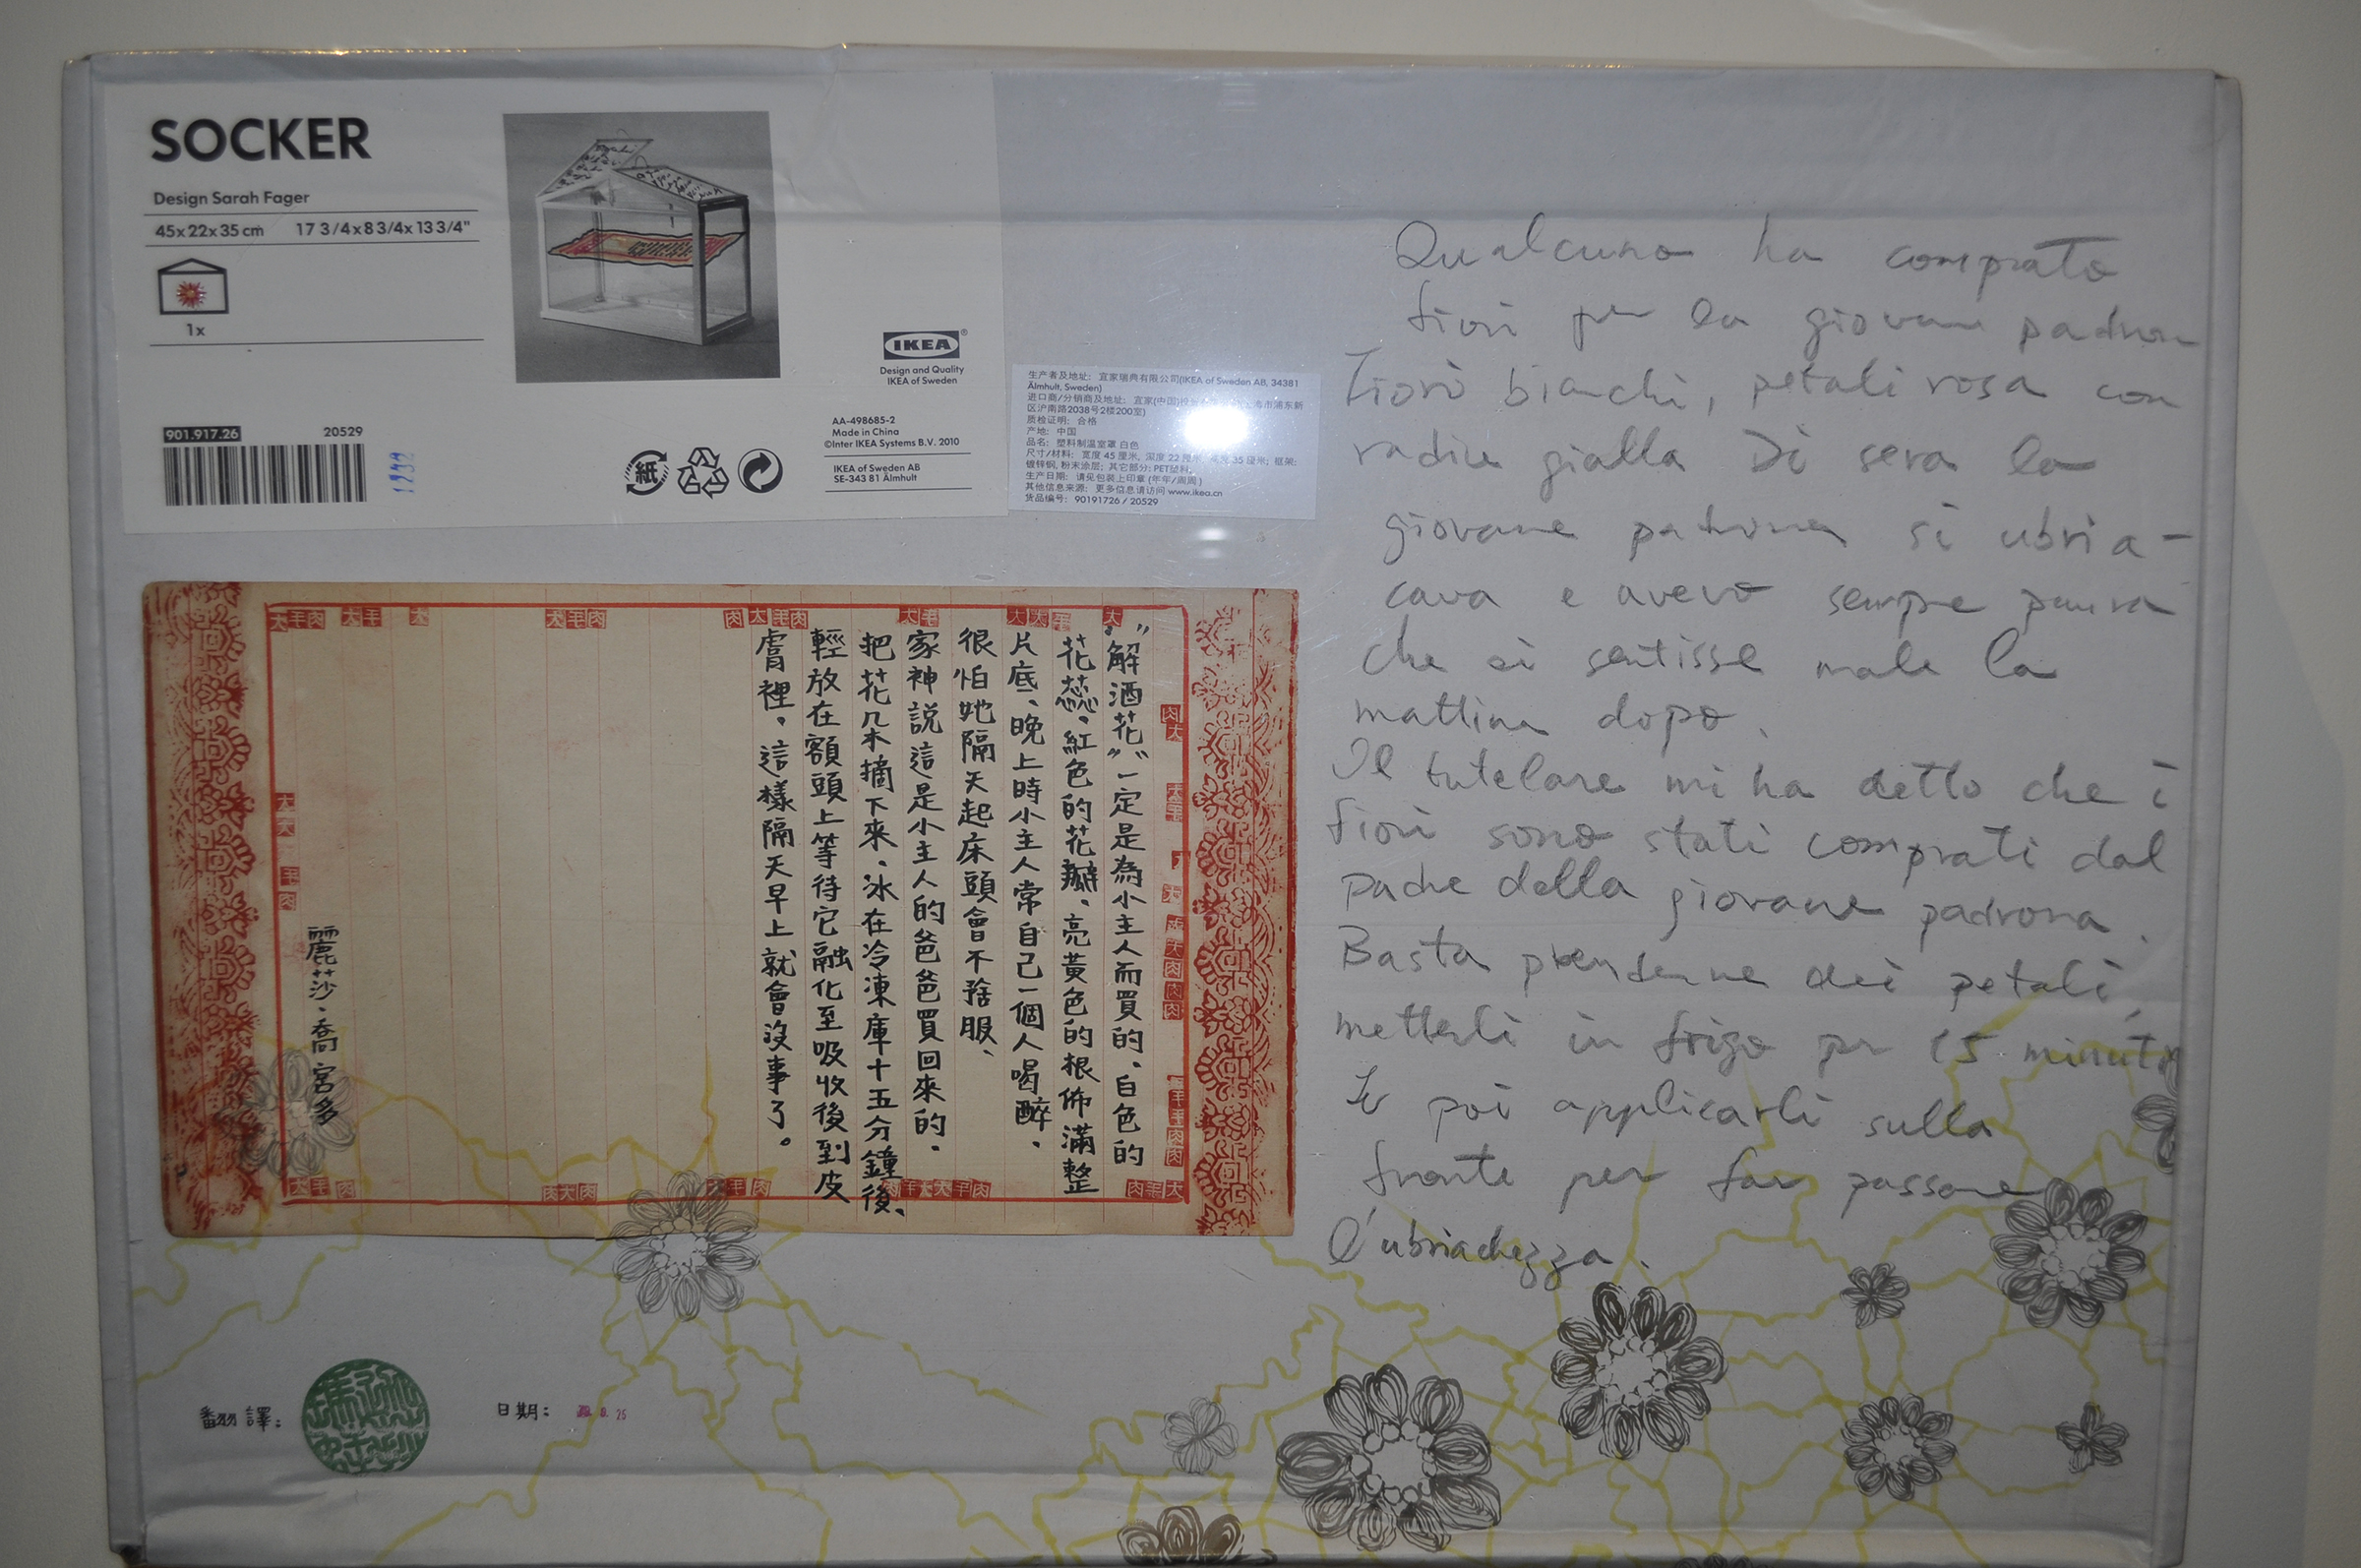 SOCKER
Design Sarah Fager
45x22x35 cm 17 3/4x8 3/4x13 3/4"
1x
901.917.26 20529
1232
IKEA
Design and Quality
IKEA of Sweden
AA-498685-2
Made in China
©Inter IKEA Systems B.V. 2010
IKEA of Sweden AB
SE-343 81 Älmhult
紙
生产者及地址: 宜家瑞典有限公司(IKEA of Sweden AB, 34381
Älmhult, Sweden)
进口商/分销商及地址: 宜家(中国) 上海市浦东新
区沪南路2038号2楼200室)
质检证明: 合格
产地: 中国
品名: 塑料制温室罩 白色
尺寸/材料: 宽度 45 厘米, 深度 22 厘米, 35 厘米; 框架:
镀锌钢, 粉末涂层; 其它部分: PET塑料
生产日期: 请见包装上印章 (年年/周周)
其他信息来源: 更多信息请访问 www.ikea.cn
货品编号: 90191726 / 20529
"解酒花"一定是為小主人而買的、白色的
花蕊、紅色的花瓣、亮黃色的根佈滿整
片底、晚上時小主人常自己一個人喝醉、
很怕她隔天起床頭會不舒服、
家神說這是小主人的爸爸買回來的.
把花朵摘下來、冰在冷凍庫十五分鐘後、
輕放在額頭上等待它融化至吸收後到皮
膚裡、這樣隔天早上就會沒事了。
麗莎、喬宮多
Qualcuno ha comprato
fiori per la giovane padron
Fiori bianchi, petali rosa con
radice gialla Di sera la
giovane padrona si ubria-
cava e avevo sempre paura
che si sentisse male la
mattina dopo.
Il tutelare mi ha detto che i
fiori sono stati comprati dal
padre della giovane padrona.
Basta prenderne dei petali,
metterli in frigo per 15 minuti
E poi applicarli sulla
fronte per far passare
l'ubriachezza.
翻譯:
日期: 8. 25